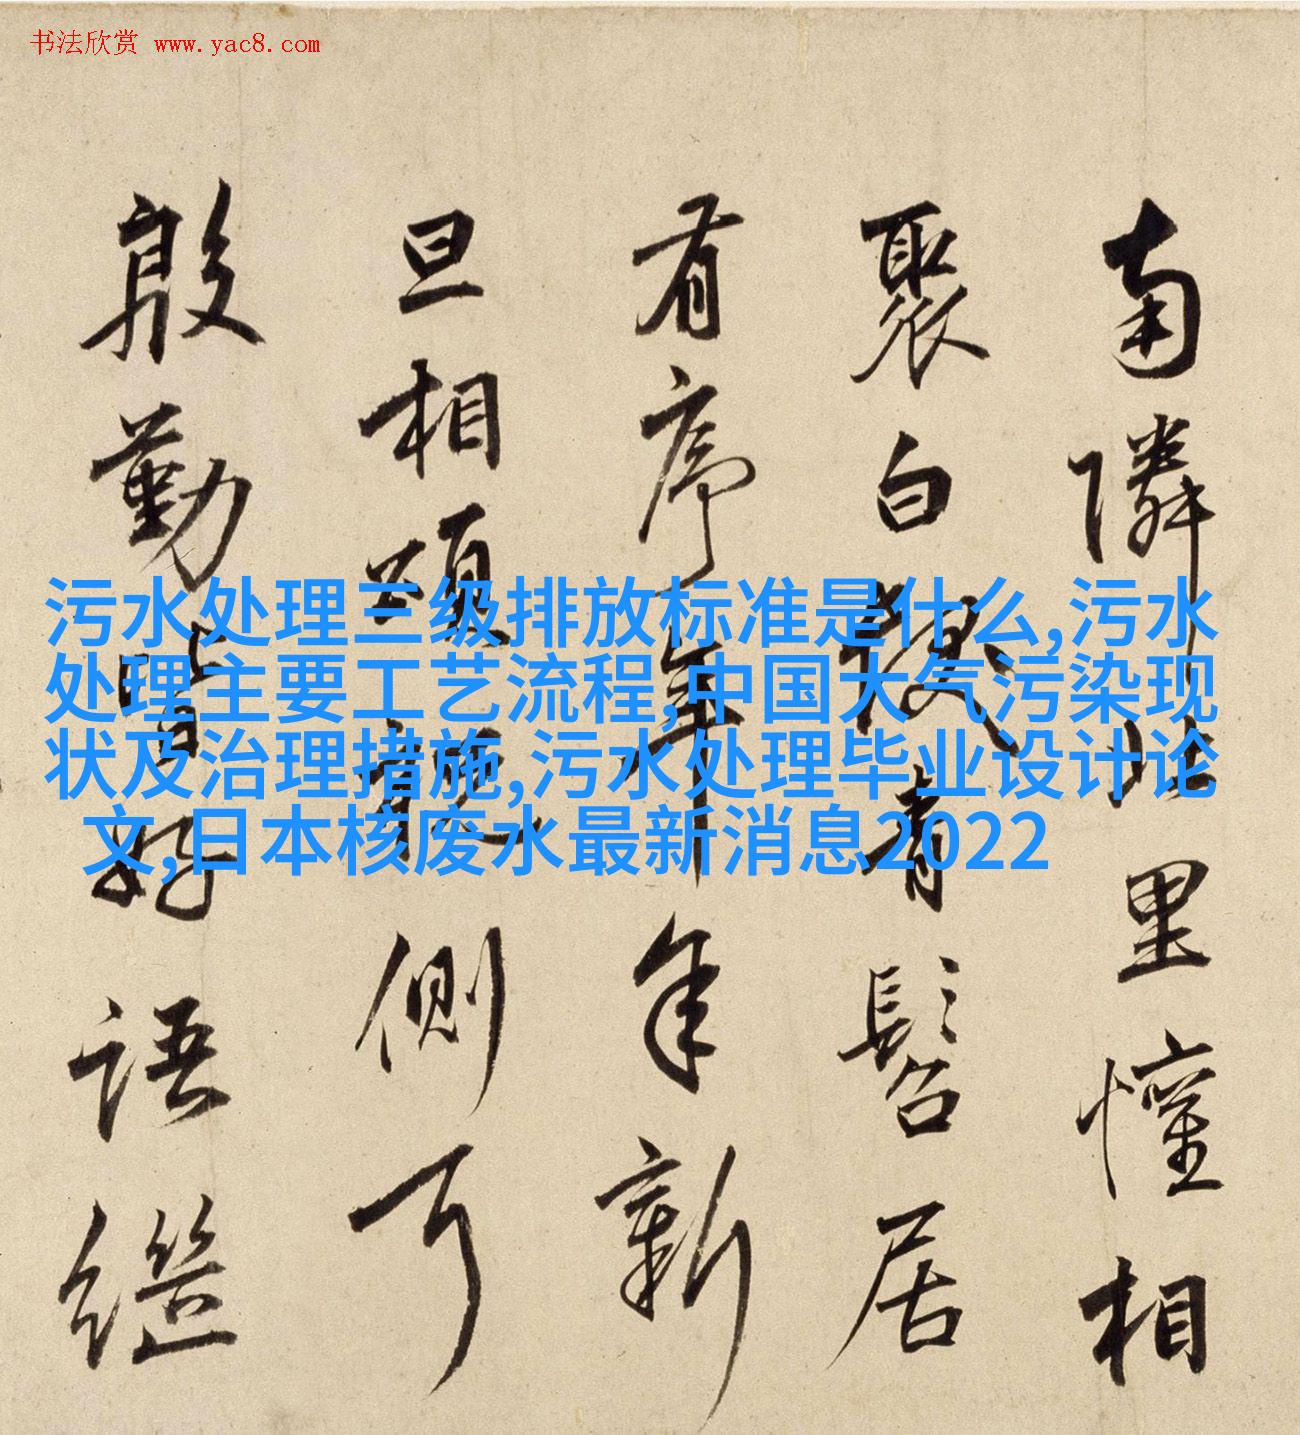 书法欣赏 www.yac8.com
南隣北里懽相
聚白青髫居
有序年年新
旦相頌側耳
殷勤皆好語繼
污水处理三级排放标准是什么,污水
处理主要工艺流程,中国大气污染现
状及治理措施,污水处理毕业设计论
文,日本核废水最新消息2022